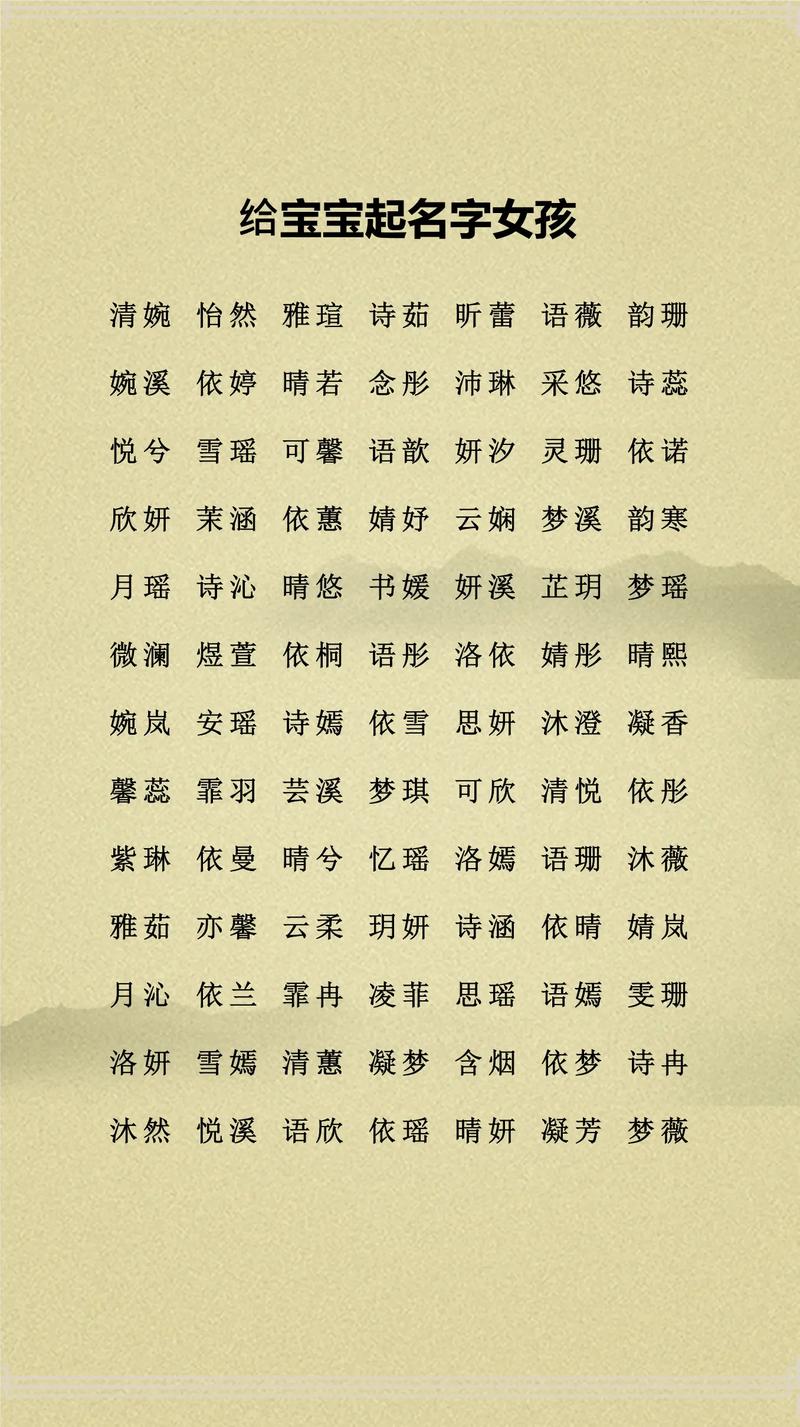 给宝宝起名字女孩
清婉 怡然 雅瑄 诗茹 昕蕾 语薇 韵珊
婉溪 依婷 晴若 念彤 沛琳 采悠 诗蕊
悦兮 雪瑶 可馨 语歆 妍汐 灵珊 依诺
欣妍 茉涵 依蕙 婧妤 云娴 梦溪 韵寒
月瑶 诗沁 晴悠 书媛 妍溪 芷玥 梦瑶
微澜 煜萱 依桐 语彤 洛依 婧彤 晴熙
婉岚 安瑶 诗嫣 依雪 思妍 沐澄 凝香
馨蕊 霏羽 芸溪 梦琪 可欣 清悦 依彤
紫琳 依曼 晴兮 忆瑶 洛嫣 语珊 沐薇
雅茹 亦馨 云柔 玥妍 诗涵 依晴 婧岚
月沁 依兰 霏冉 凌菲 思瑶 语嫣 雯珊
洛妍 雪嫣 清蕙 凝梦 含烟 依梦 诗冉
沐然 悦溪 语欣 依瑶 晴妍 凝芳 梦薇